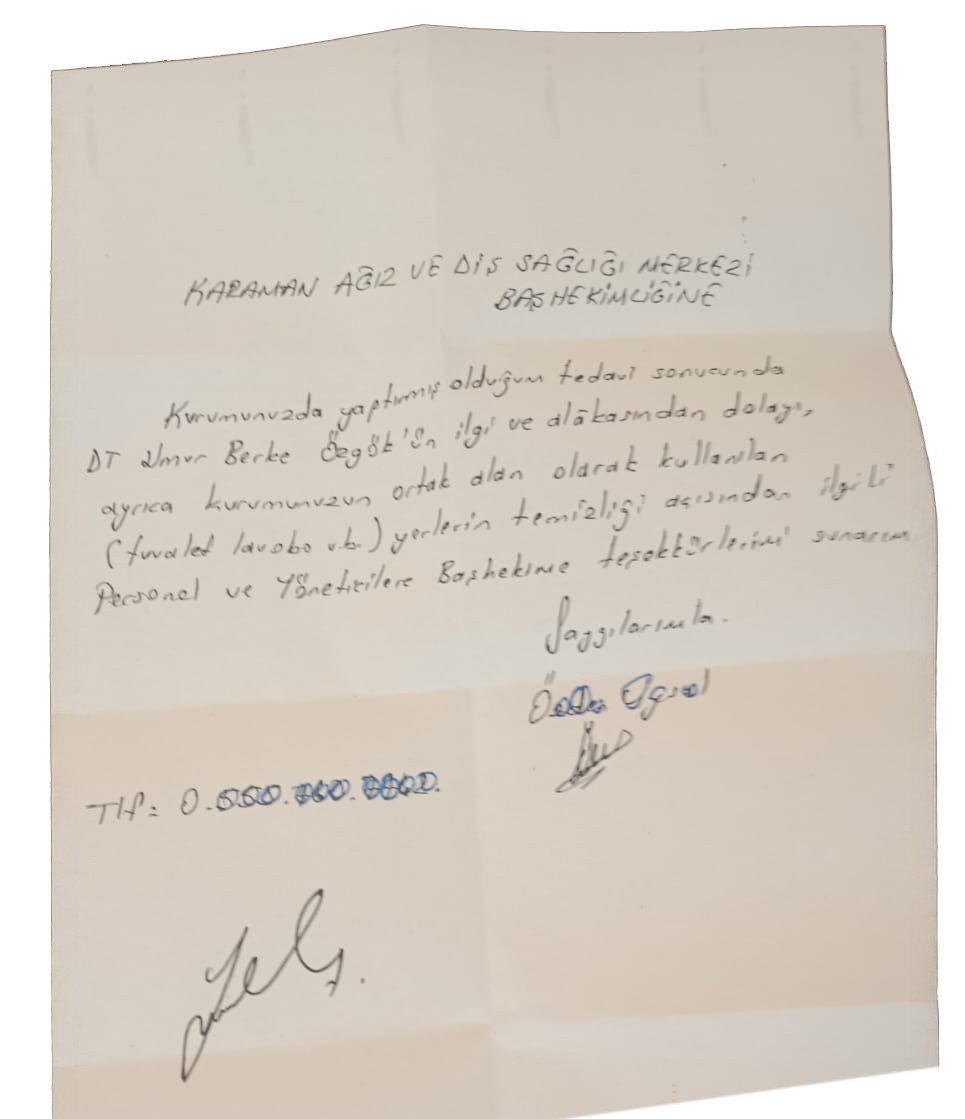 KARAMAN AĞIZ VE DİŞ SAĞLIĞI MERKEZİ
BAŞHEKİMLİĞİNE
Kurumunuzda yaptırmış olduğum tedavi sonucunda
DT Umur Berke Özgök'ün ilgi ve alâkasından dolayı,
ayrıca kurumunuzun ortak alan olarak kullanılan
(tuvalet lavobo v.b.) yerlerin temizliği açısından ilgili
Personel ve Yöneticilere Başhekime teşekkürlerimi sunarım
Saygılarımla.
Tlf: 0.